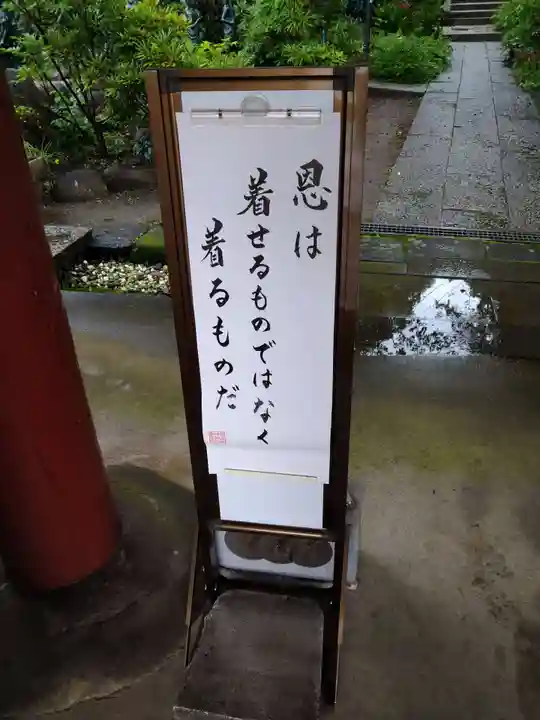 恩は
着せるものではなく
着るものだ